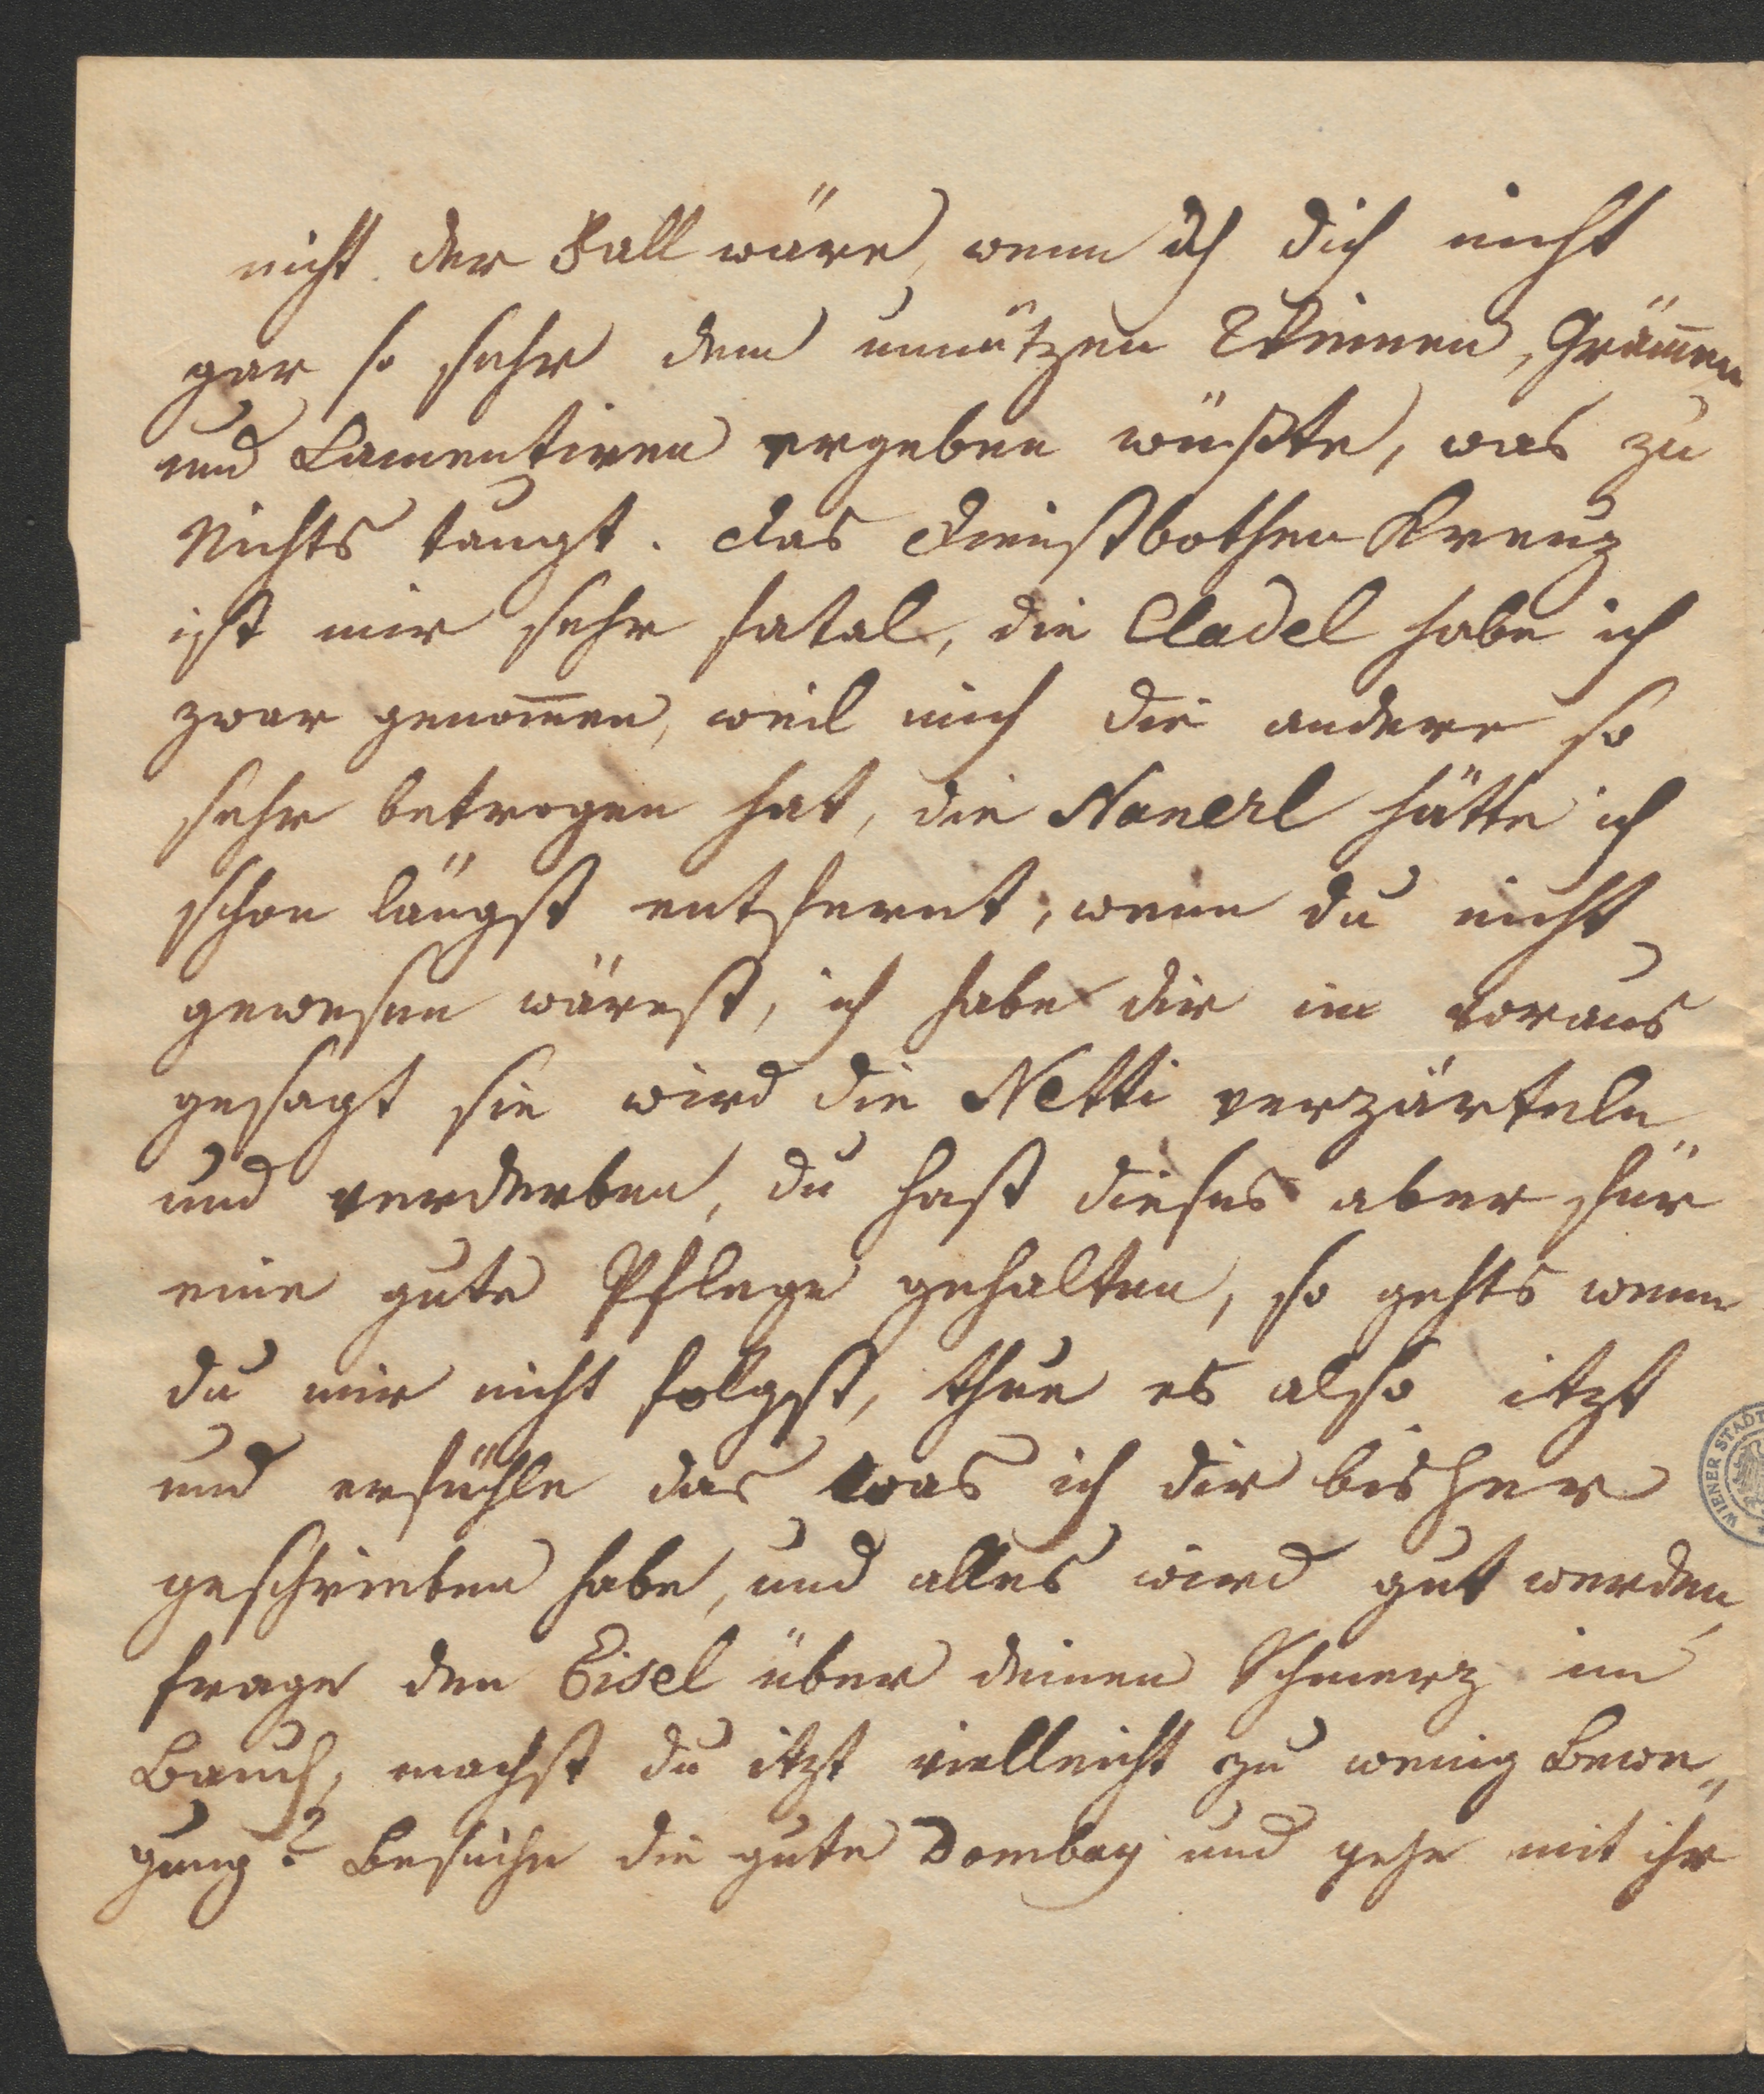 nicht der Fall wäre, wenn ich dich nicht
gar so sehr dem unnützen Weinen, Grämen
und Lamentiren ergeben wüßte, was zu
Nichts taugt. Das Dienstbothen Kreuz
ist mir sehr fatal, die Cladel habe ich
zwar genom̅en, weil mich die andere so
sehr betrogen hat, die Nanerl hätte ich
schon längst entfernt, wenn du nicht
gewesen wärest, ich habe dir im voraus
gesagt sie wird die Netti verzärteln
und verderben, du hast dieses aber für
eine gute Pflege gehalten, so gehts wenn
du mir nicht folgst, thue es also itzt
und erfühle das was ich dir bisher
geschrieben habe, und alles wird gut werden,
frage den Eisel über deinen Schmerz im
Bauch, machst du itzt vielleicht zu wenig Bewe„
gung? Besuche die gute Dombay und gehe mit ihr
WIENER STADT